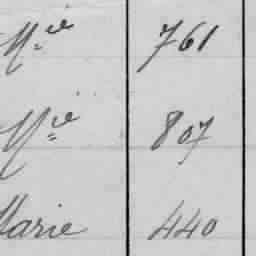 Mie 761
Mie 807
Marie 440